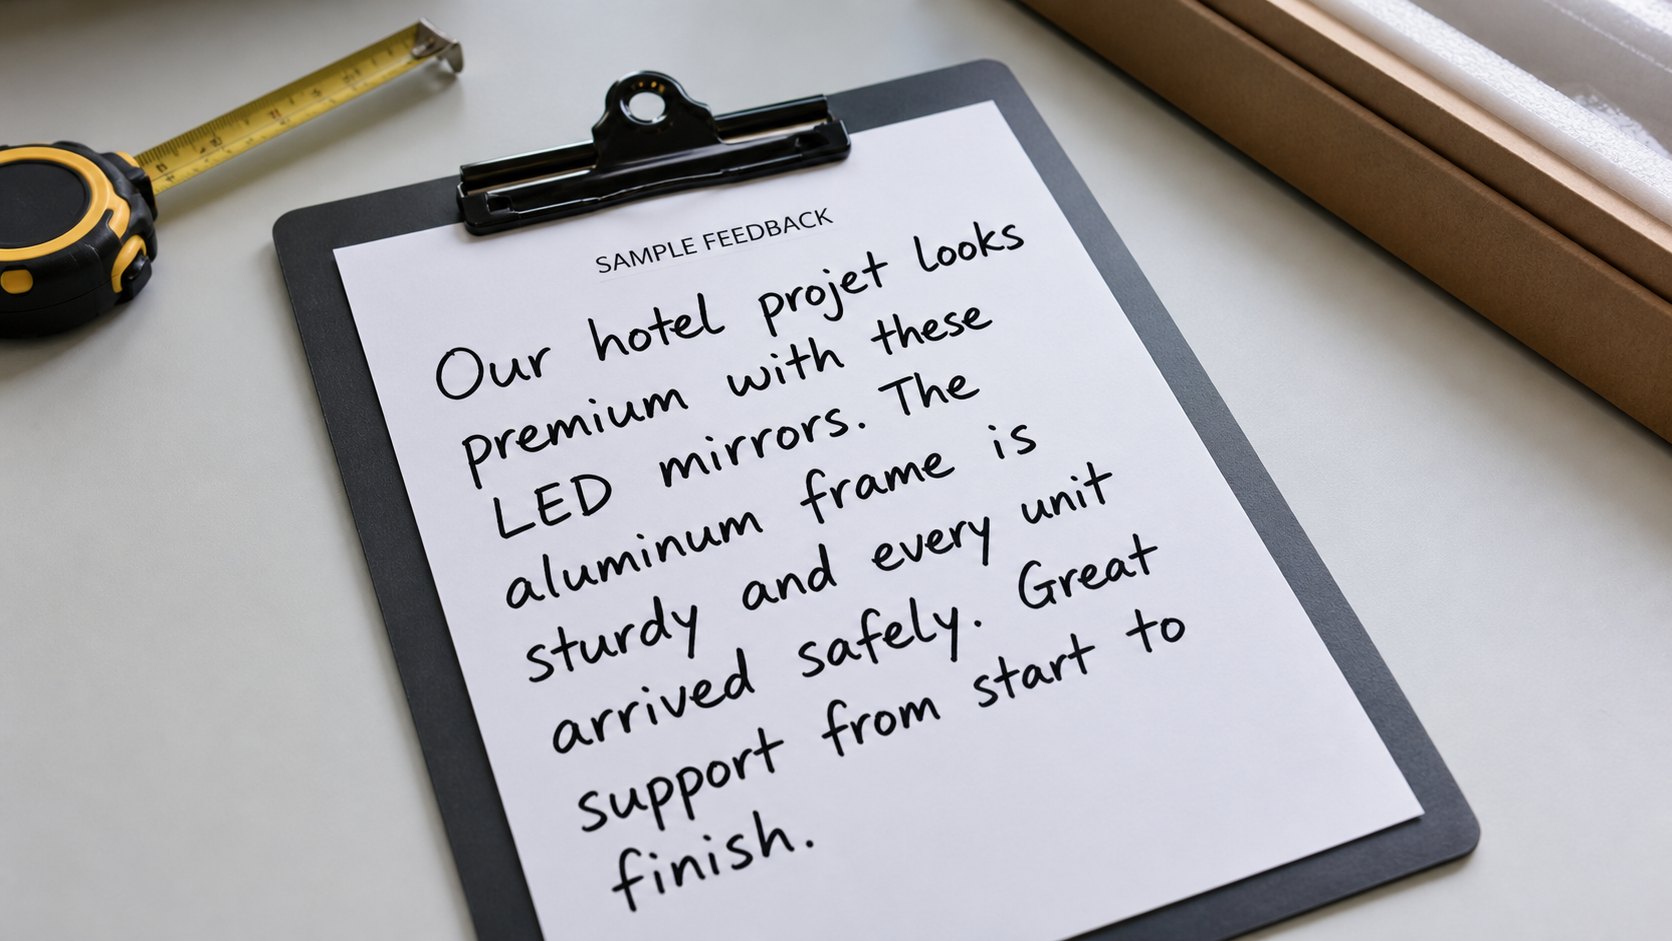 SAMPLE FEEDBACK
Our hotel projet looks
premium with these
LED mirrors. The
aluminum frame is
sturdy and every unit
arrived safely. Great
support from start to
finish.